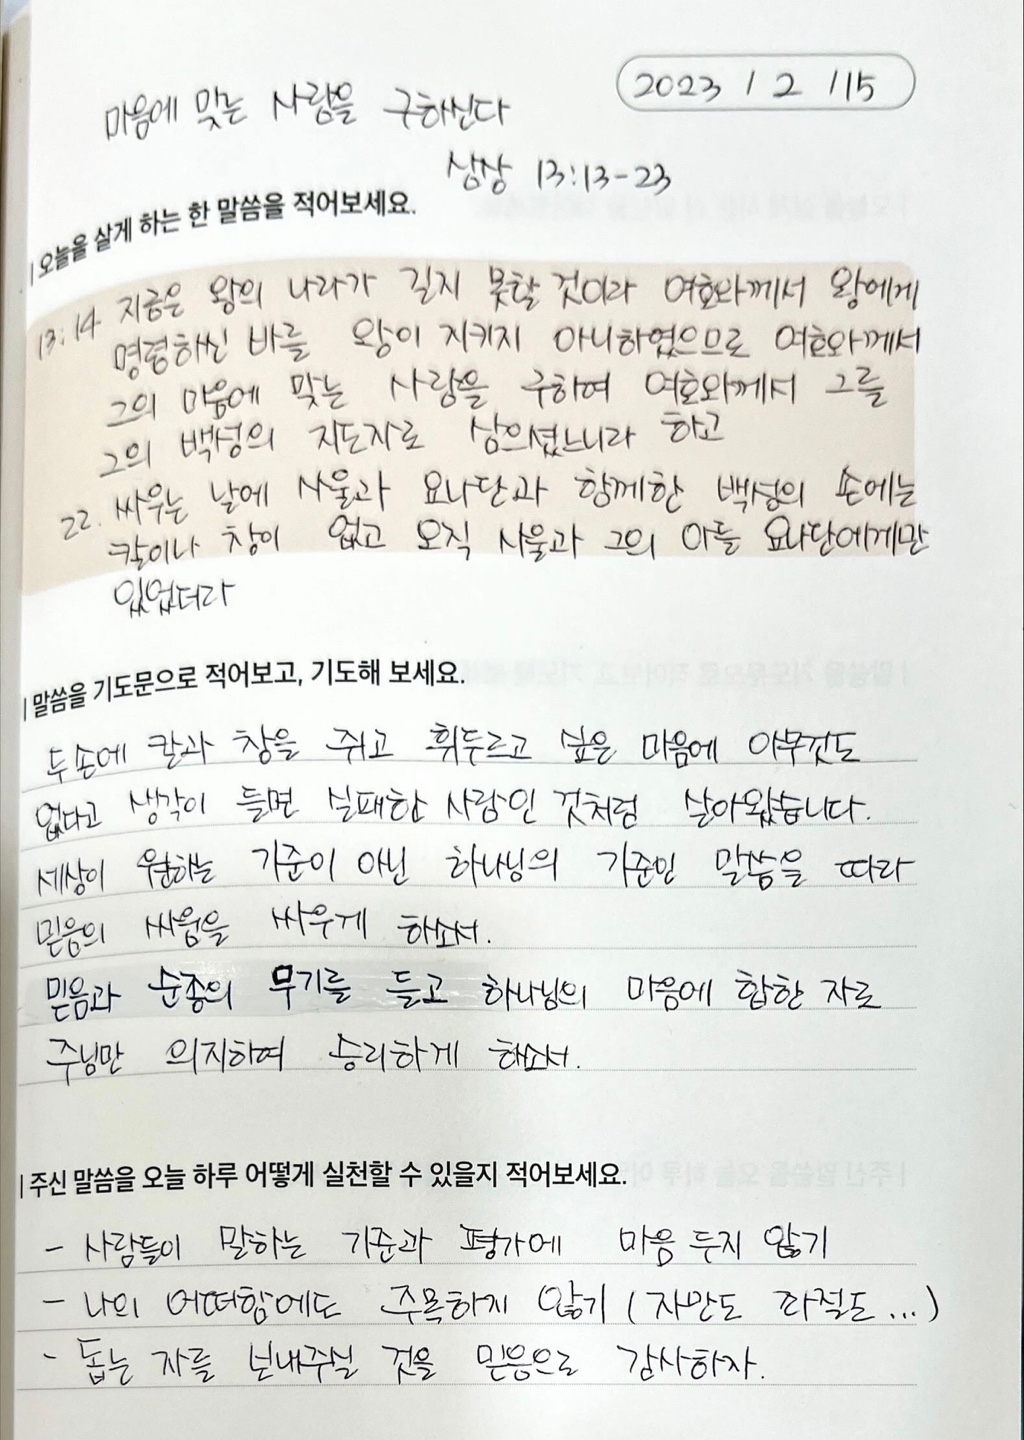 2023 / 2 / 15
마음에 맞는 사람을 구하신다
삼상 13:13-23
| 오늘을 살게 하는 한 말씀을 적어보세요.
13:14 지금은 왕의 나라가 길지 못할 것이라 여호와께서 왕에게
명령하신 바를 왕이 지키지 아니하였으므로 여호와께서
그의 마음에 맞는 사람을 구하여 여호와께서 그를
그의 백성의 지도자로 삼으셨느니라 하고
22. 싸우는 날에 사울과 요나단과 함께한 백성의 손에는
칼이나 창이 없고 오직 사울과 그의 아들 요나단에게만
있었더라
| 말씀을 기도문으로 적어보고, 기도해 보세요.
두 손에 칼과 창을 쥐고 휘두르고 싶은 마음에 아무것도
없다고 생각이 들면 실패한 사람인 것처럼 살아왔습니다.
세상이 원하는 기준이 아닌 하나님의 기준인 말씀을 따라
믿음의 싸움을 싸우게 하소서.
믿음과 순종의 무기를 들고 하나님의 마음에 합한 자로
주님만 의지하여 승리하게 하소서.
| 주신 말씀을 오늘 하루 어떻게 실천할 수 있을지 적어보세요.
- 사람들이 말하는 기준과 평가에 마음 두지 않기
- 나의 어떠함에도 주목하지 않기 (자만도 좌절도...)
- 돕는 자를 보내주실 것을 믿음으로 감사하자.